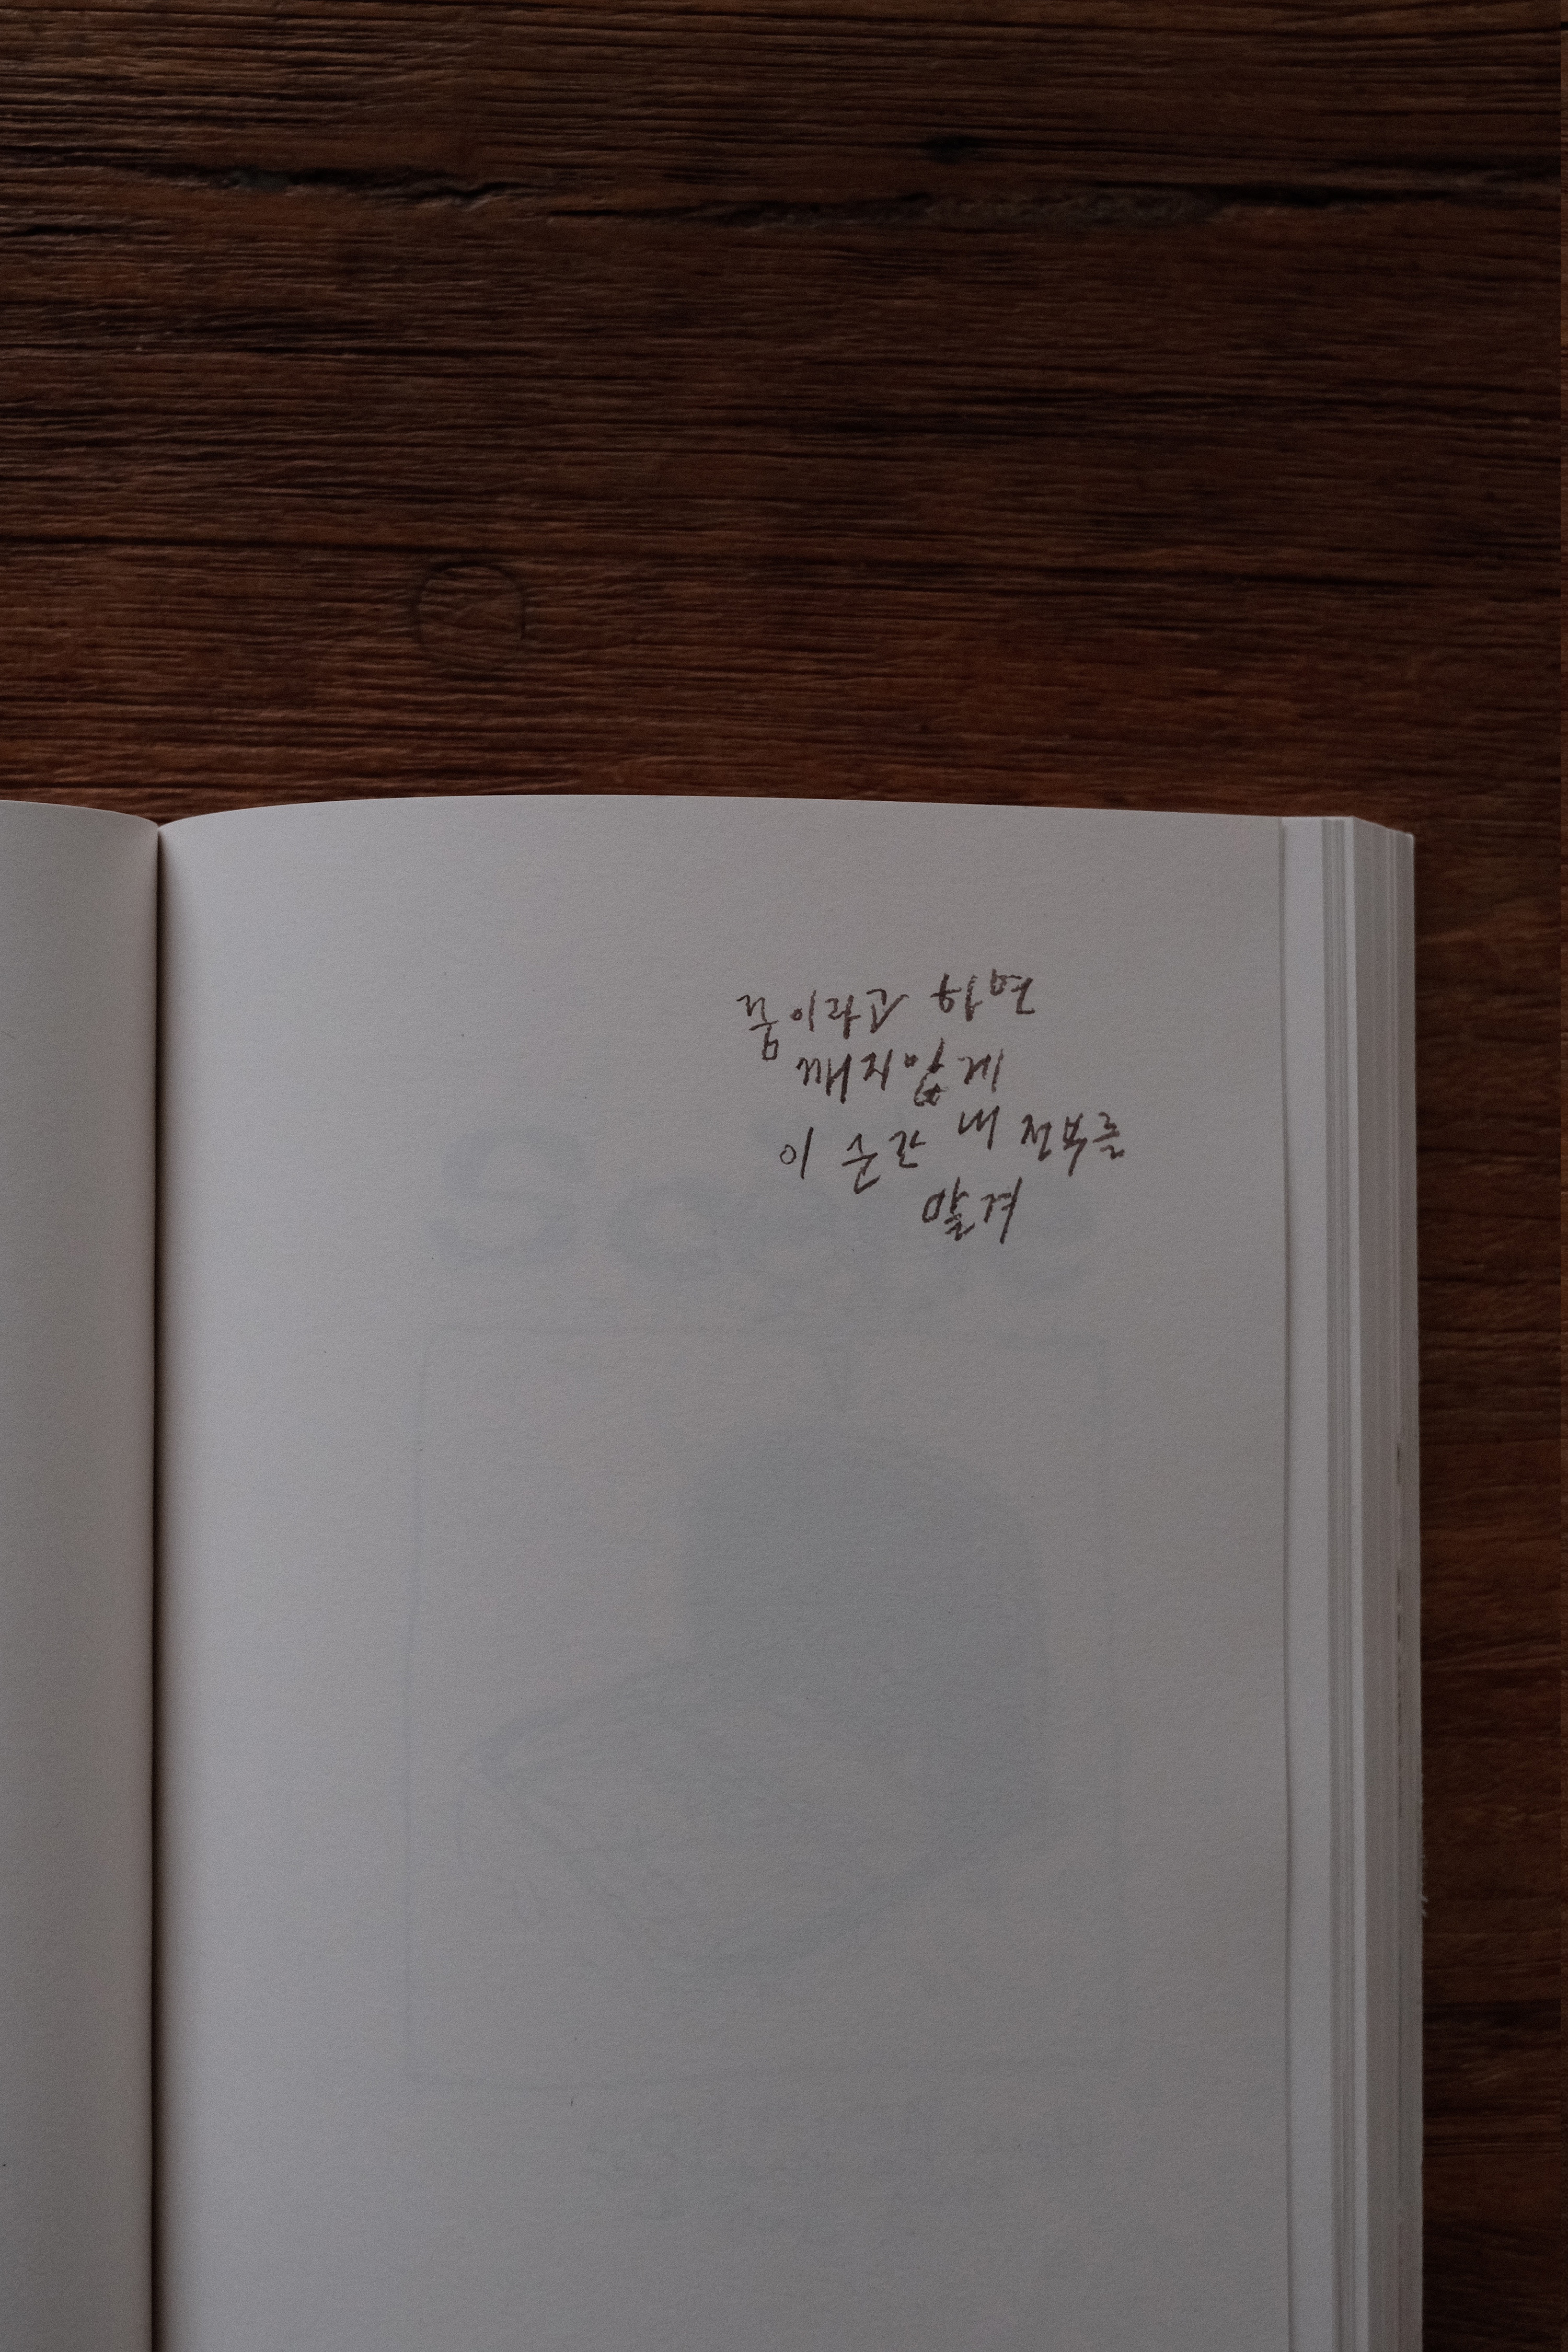 꿈이라고 하면
깨지않게
이 순간 내 전부를
맡겨